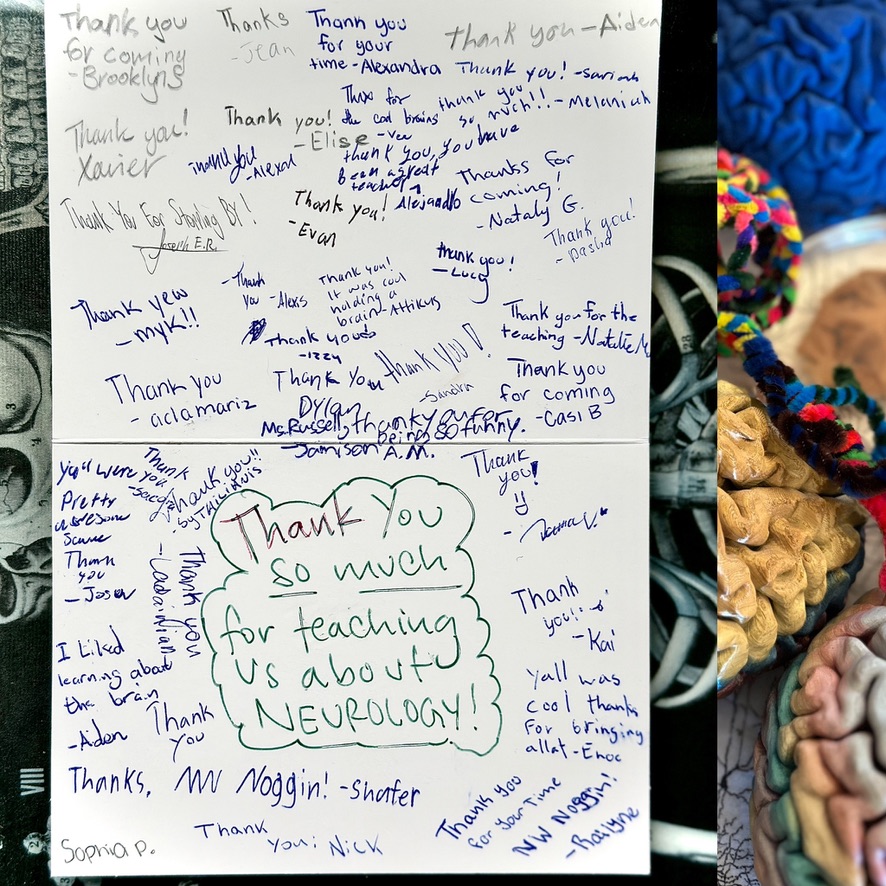 Thank you
for coming
-Brooklyn S
Thanks
-Jean
Thank you
for your
time -Alexandra
thank you -Aiden
Thank you! -Sariah
Thank you!
Xavier
Thank you!
-Elise
Thnx for
the cool brains
-Vee
thank you
so much!! -Melaniah
thank you
-Alexa
thank you, you have
been a great
teacher
Alejandro
Thanks for
coming!
-Nataly G.
Thank You For Stopping BY!
Joseph E.R.
Thank you!
-Evan
Thank you!
-Dasha
Thank yew
-myk!!
-Thank
you -Alexis
Thank you!
It was cool
holding a
brain -Attikus
thank you!
-Lucy
Thank you for the
teaching -Natalie M
Thank you
-Izzy
Thank you
-aclamariz
Thank You
Dylan
thank you!
-Sandra
Thank you
for coming
-Casi B
Ms. Russell, thank you for
being so funny.
-Jamison A.M.
you'll were
Pretty
awesome
Thank
you
-Jose
Thank
you
Thank you!!
Thank
you!
Thank You
so much
for teaching
us about
NEUROLOGY!
Thank you
I Liked
learning about
the brain
-Aden
Thank
you
Thank
you!!
-Kai
Yall was
cool thanks
For bringing
allat -Enoc
Thanks, NW Noggin! -Shafer
Thank you
for Your Time
NW Noggin!
-Railyne
Sophia P.
Thank
you! Nick
VIII
3
28